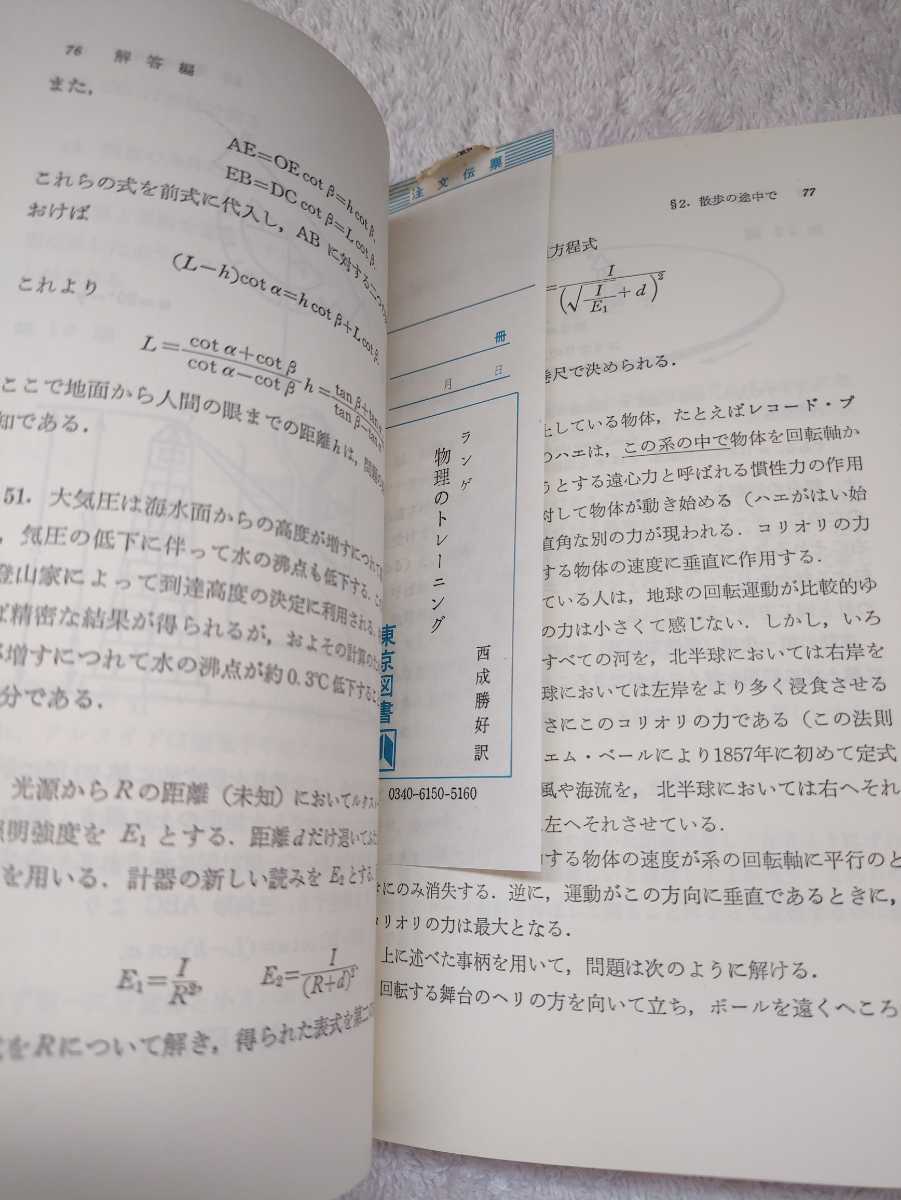 76 解答編
また,
AE=OE cot β=h cot β,
EB=DC cot β=L cot β.
これらの式を前式に代入し, AB に対する二つの
おけば
(L−h)cot α=h cot β+L cot β.
これより
L=(cot α+cot β)/(cot α−cot β) h=(tan β+tan α)/(tan β−tan α)
ここで地面から人間の眼までの距離hは, 問題の
知である.
51. 大気圧は海水面からの高度が増すにつれて
, 気圧の低下に伴って水の沸点も低下する. この
登山家によって到達高度の決定に利用される.
ば精密な結果が得られるが, およその計算のた
増すにつれて水の沸点が約0.3℃低下するこ
分である.
光源からRの距離(未知)においてルクス
照明強度を E₁ とする. 距離dだけ退いて
を用いる. 計器の新しい読みを E₂とする.
E₁=I/R², E₂=I/(R+d)²
をRについて解き, 得られた表式を第二の
注文伝票
冊
月 日
ランゲ
物理のトレーニング
西成勝好訳
東京図書
0340-6150-5160
§2. 散歩の途中で 77
方程式
=I/(√(I/E₁)+d)²
巻尺で決められる.
している物体, たとえばレコード・プ
のハエは, この系の中で物体を回転軸か
うとする遠心力と呼ばれる慣性力の作用
対して物体が動き始める(ハエがはい始
直角な別の力が現われる. コリオリの力
する物体の速度に垂直に作用する.
ている人は, 地球の回転運動が比較的ゆ
の力は小さくて感じない. しかし, いろ
すべての河を, 北半球においては右岸を
球においては左岸をより多く浸食させる
さにこのコリオリの力である(この法則
エム・ベールにより1857年に初めて定式
風や海流を, 北半球においては右へそれ
左へそれさせている.
する物体の速度が系の回転軸に平行のと
きにのみ消失する. 逆に, 運動がこの方向に垂直であるときに,
コリオリの力は最大となる.
上に述べた事柄を用いて, 問題は次のように解ける.
回転する舞台のヘリの方を向いて立ち, ボールを遠くへころ